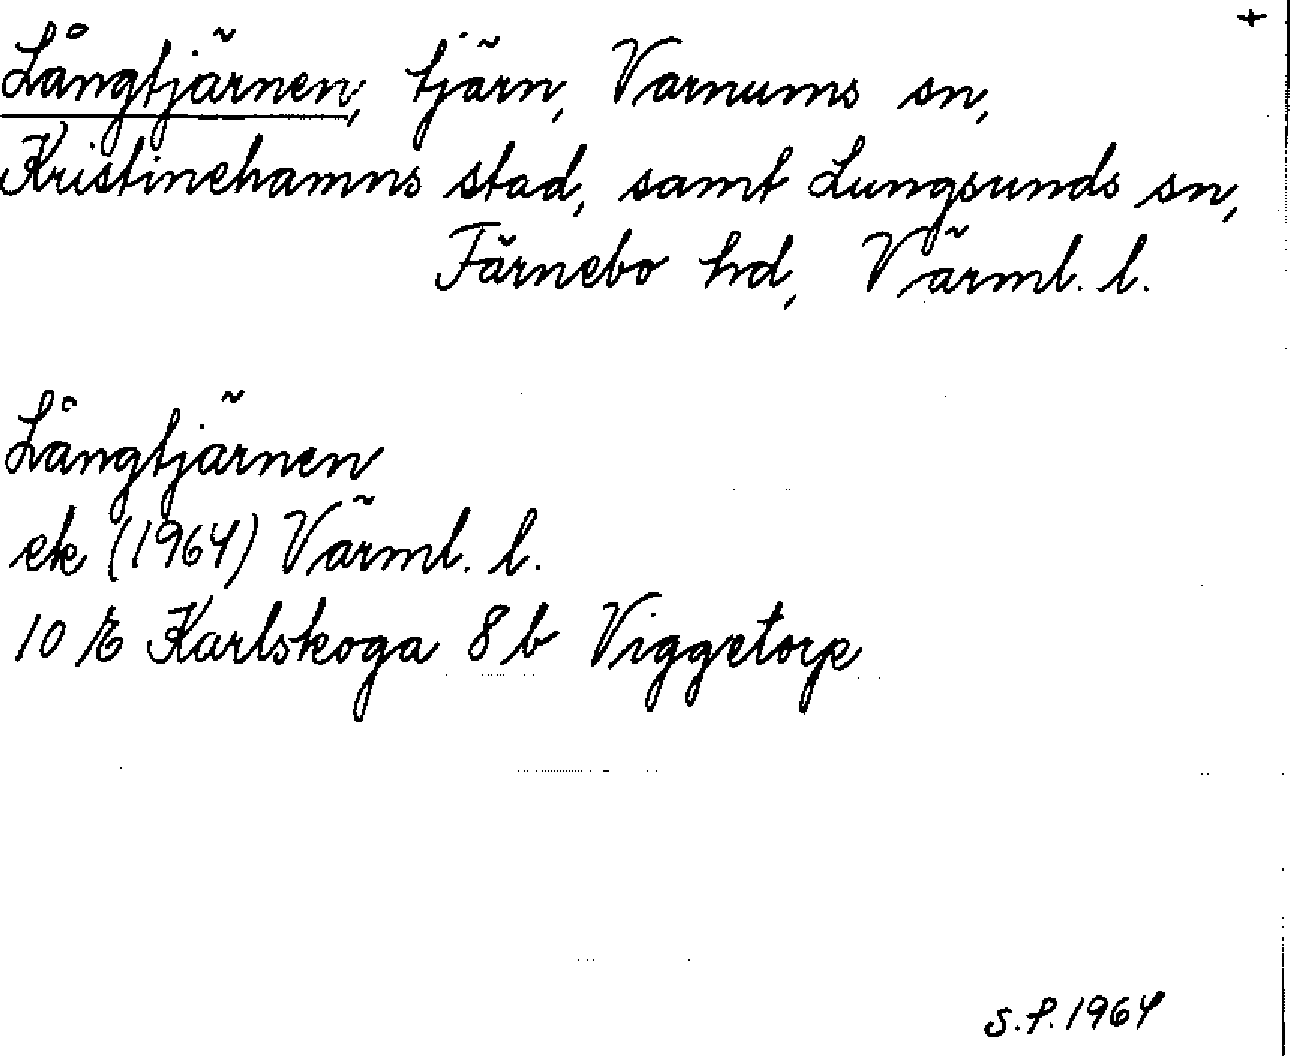 +
Långtjärnen, tjärn, Varnums sn,
Kristinehamns stad, samt Lungsunds sn,
Färnebo hd, Värml. l.
Långtjärnen
ek (1964) Värml. l.
10 E Karlskoga 8 b Viggetorp
S.P. 1964